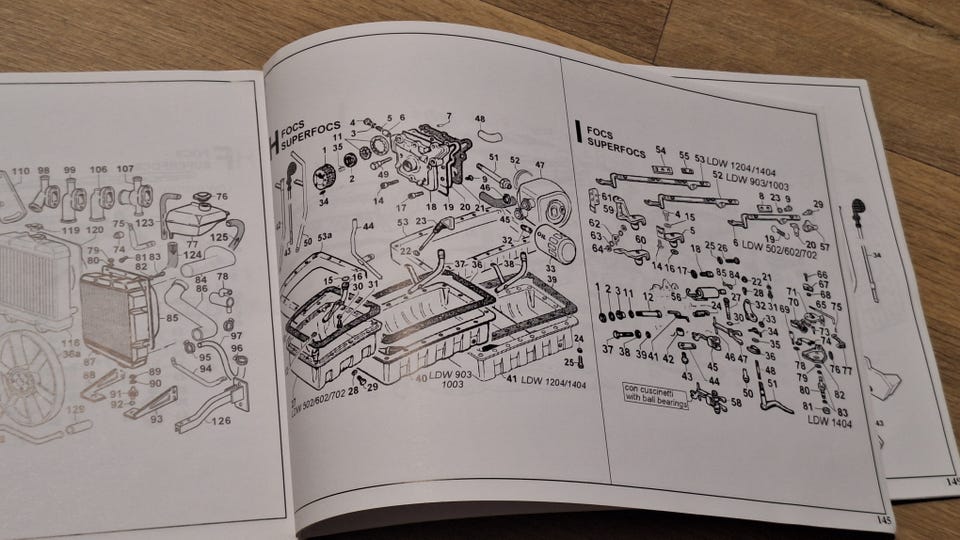 110 98 99 106 107
76
119 120 123
75
77
125
79
80
74
81 83
82
124
78
84
86
85
97
96
95
94
116
36a
87
88
89
90
91
92
93
129
126
H FOCS
SUPERFOCS
4 5 6 7 48
3
11
35
1
2
49
34
14
17
51 52 47
9
46
18 19 20 21
53 23
44
42
43 50
53a
22
45
32
33
39
15 16
30 31
37 36 38
24
25
28 29
40 LDW 903
1003
41 LDW 1204/1404
LDW 502/602/702
I FOCS
SUPERFOCS
54 55 53 LDW 1204/1404
52 LDW 903/1003
61
59
62
63
64
60
4 15
5
8 23 9
29
19 20 57
6 LDW 502/602/702
14 16 17
18 25 26
85 84 22 21
28
66
67
68
1 2 3 11 12 56
24 27 32 31
30 33
34
35
36
71
70
69
65 75
73
74
37 38 39 41 42
43 45 46 47
44
48
51
58
72
76 77
78
79
80
81
82
83
con cuscinetti
with ball bearings
LDW 1404
145
34
43
145